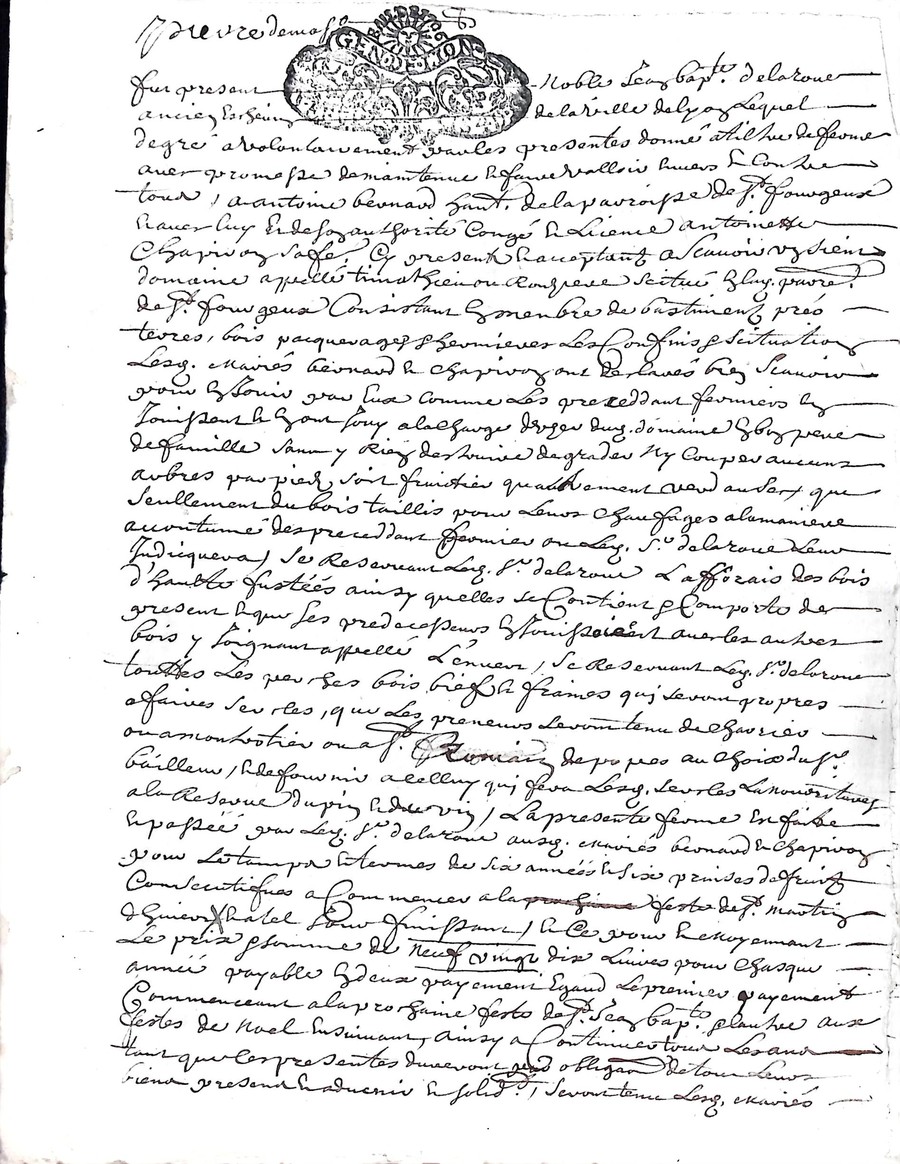 GEN DE LION
fut present noble Jean bapte delaroue
ancien Eschevin de la ville de Lyon Lequel
de gré a volontairement par les presentes donné a tiltre de ferme
avec promesse de maintenue & faire valloir envers & Contre
tous, a antoine bernard habt. de la parroisse de St. fourgeux
& avec luy & de son authorité Congé & Licence antoinette
Chapivon sa fe. Cy present & acceptant a Scavoir un sien
domaine appellé timathieu ou situé en lad. parre.
de St. fourgeux Consistant en membre de bastiment prés
terres, bois pacquerages & hermieres Les Confins & situation
Lesq. mariés bernard & chapivon ont declarés bien Scavoir
pour en Jouir par Eux comme Les preceddant fermiers en
Jouissent & en ont Jouy a la charge dud. domaine en bon pere
de famille sans y Rien destruire degrader Ny Couper aucuns
arbres par pied, soit fruitier qu'aultrement verd ou sex que
seullement du bois taillis pour Leurs chauffages a la maniere
accoutumé des preceddant fermier ou Led. Sr. delaroue Leur
Indicquera, se Reservant Led. Sr. delaroue des bois
d'haulte fustéés ainsy quelles se Contient & Comporte de
present & que ses predecesseurs en Jouissoient avec les autres
bois y Joignant appellé L'envers, se Reservant Led. Sr. delaroue
touttes Les perches bois bief & qui seront propres
a faires sercles, que Les preneurs seront tenu de charier
ou a montrotier ou a St. Romain de popes au choix du Sr.
bailleur, & de fournir a celluy qui fera Lesq. sercles La nourriture
a la Reserve du pin & du vin, La presente ferme En faite
& passéé par Led. Sr. delaroue ausd. mariés bernard & chapivon
pour Le tamps & termes de six annéés & six prinses de fruits
Consecutifves a Commencer a la feste de St. martin
d'hiver Jour finissant, & Ce pour & moyennant
Le prix & somme de neuf vingt dix Livres pour chasque
année payable en deux payement Egaux Le premier payement
Commenceant a la prochaine feste de St. Jean bapte. & lautre aux
festes de noel Ensuivant, ainsy a Continuer tous Les ans
tant que les presentes dureront obligaon de tous Leurs
biens present & advenir & solidt., seront tenu Lesq. mariés